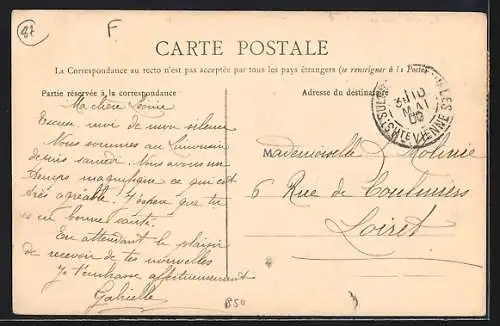 87
F
CARTE POSTALE
La Correspondance au recto n'est pas acceptée par tous les pays étrangers (se renseigner à la Poste)
Partie réservée à la correspondance
Adresse du destinataire
Ma chère Louise
Excuse moi de mon silence
Nous sommes au
depuis samedi. Nous avons un
temps magnifique ce qui est
très agréable. J'espère que tu
es en bonne santé.
En attendant le plaisir
de recevoir de tes nouvelles
Je t'embrasse affectueusement
Gabrielle
Mademoiselle L. Molinie
6 Rue de Coulmiers
Loiret
MAI
HTE VIENNE
B50